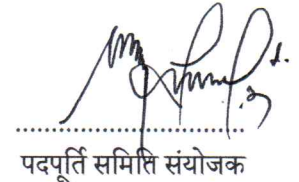 पदपूर्ति समिति संयोजक